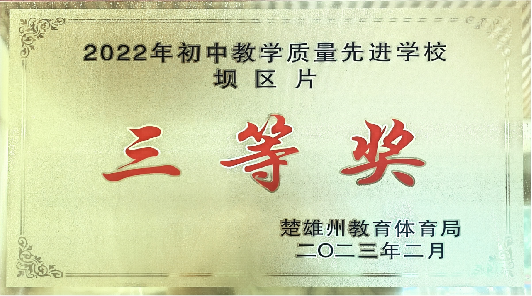 2022年初中教学质量先进学校
坝区片
三等奖
楚雄州教育体育局
二〇二三年二月